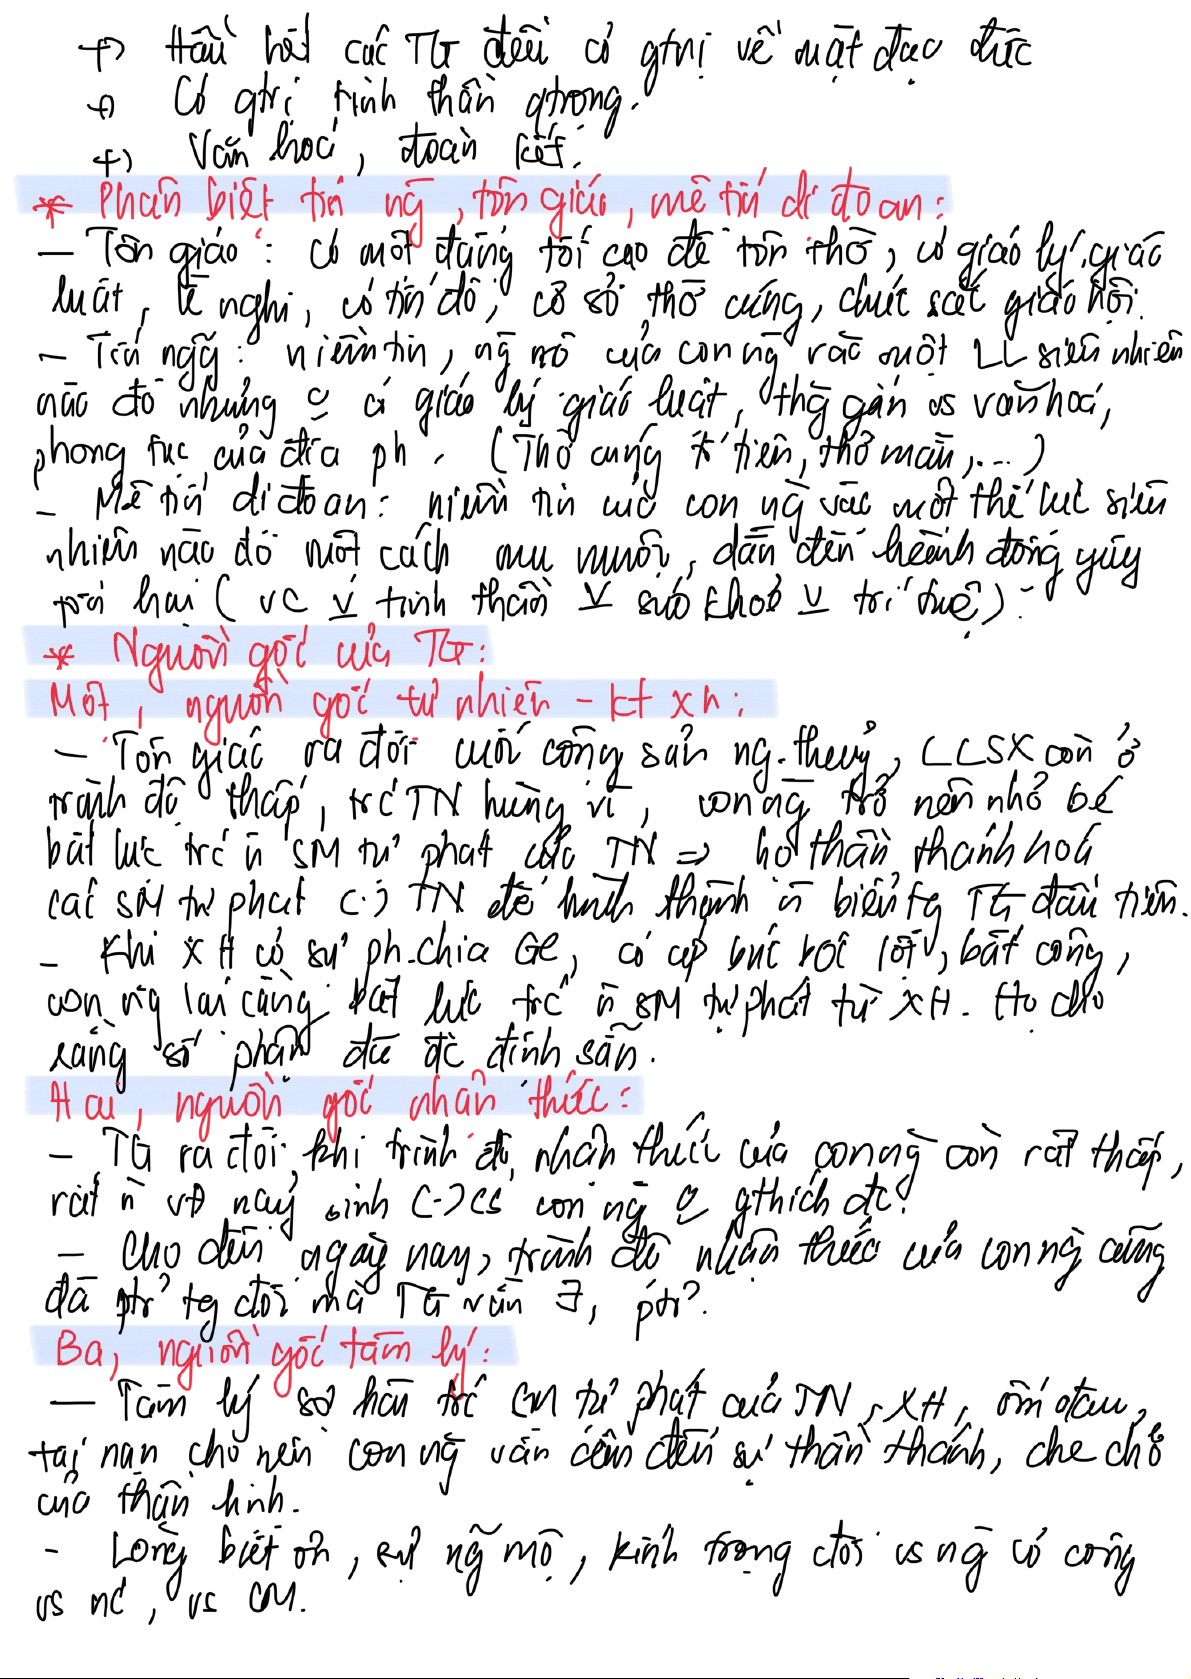 +) Hầu hết các TG đều có gtrị về mặt đạo đức
+) Có gtrị tinh thần qtrọng.
+) Văn hoá, đoàn kết.
* Phân biệt tín ng̃, tôn giáo, mê tín dị đoan:
- Tôn giáo : có một đấng tối cao để tôn thờ, có giáo lý, giáo
luật, lễ nghi, có tín đồ, cơ sở thờ cúng, chức sắc giáo hội.
- Tín ngg̃ : niềm tin, ng̃ mộ của con ng̀ vào một LL siêu nhiên
nào đó nhưng có giáo lý giáo luật, thg̀ gắn vs văn hoá,
phong tục của địa ph . (Thờ cúng tổ tiên, thờ mẫu,...)
- Mê tín dị đoan: niềm tin của con ng̀ vào một thế lực siêu
nhiên nào đó một cách mu muội, dẫn đến hành động gây
hại ( vc V tinh thần V sức khoẻ V trí tuệ).
* Nguồn gốc của TG:
Một, nguồn gốc tự nhiên - kt xh:
- Tôn giáo ra đời cuối cộng sản ng.thuỷ, LLSX còn ở
trình độ thấp, trc TN hùng vĩ, con ng̀ trở nên nhỏ bé
bất lực trc ~n SM tự phát của TN => họ thần thánh hoá
các SM tự phát (.) TN để hình thành ~n biểu tg TG đầu tiên.
- Khi XH có sự ph.chia GC, có áp bức bóc lột, bất công,
con ng̀ lại càng bất lực trc ~n SM tự phát từ XH. Họ cho
rằng số phận đã đc định sẵn.
Hai, nguồn gốc nhận thức:
- TG ra đời khi trình độ nhận thức của con ng̀ còn rất thấp,
rất ~n vđ nảy sinh (.) cs con ng̀ gthích đc.
- Cho đến ngày nay, trình độ nhận thức của con ng̀ cũng
đã ptr tg đối mà TG vẫn ∃, ptr.
Ba, nguồn gốc tâm lý:
- Tâm lý sợ hãi trc SM tự phát của TN, XH, ốm đau,
tai nạn cho nên con ng̀ vẫn cần đến sự thần thánh, che chở
của thần linh.
- Lòng biết ơn, sự ng̃ mộ, kính trọng đối vs ng̀ có công
vs nc, vs CM.